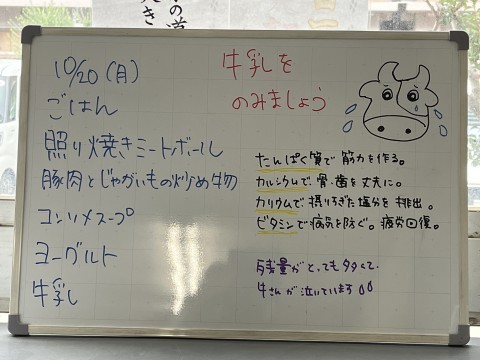 10/20(月)
ごはん
照り焼きミートボール
豚肉とじゃがいもの炒め物
コンソメスープ
ヨーグルト
牛乳
牛乳を
のみましょう
たんぱく質で筋力を作る。
カルシウムで骨・歯を丈夫に。
カリウムで摂りすぎた塩分を排出。
ビタミンで病気を防ぐ。疲労回復。
残量がとっても多くて
牛さんが泣いています